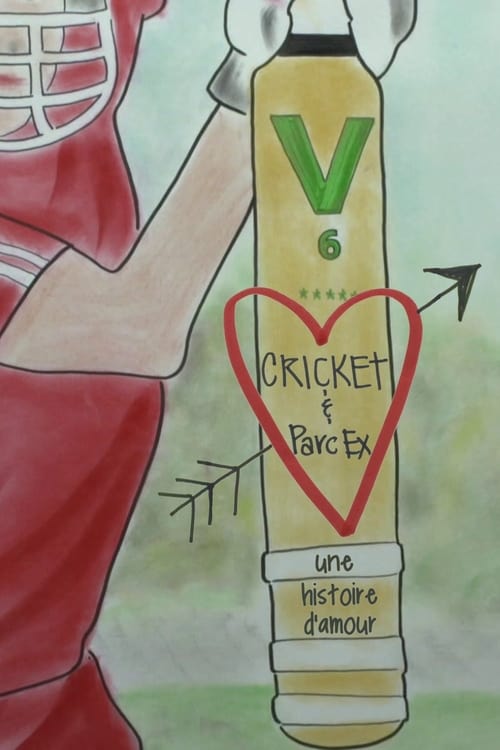 V
6
CRICKET
&
Parc Ex
une
histoire
d'amour